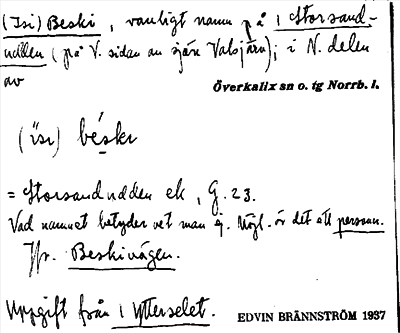 (Isi) Beski, vanligt namn på 1 Storsand-
udden (på V. sidan av sjön Valsjärv); i N. delen
av
Överkalix sn o. tg Norrb. l.
(i̋sı) béskı
= Storsandudden ek, G. 23.
Vad namnet betyder vet man ej. Möjl. är det ett person.
Jfr. Beskivägen.
Uppgift från 1 Ytterselet.
EDVIN BRÄNNSTRÖM 1937